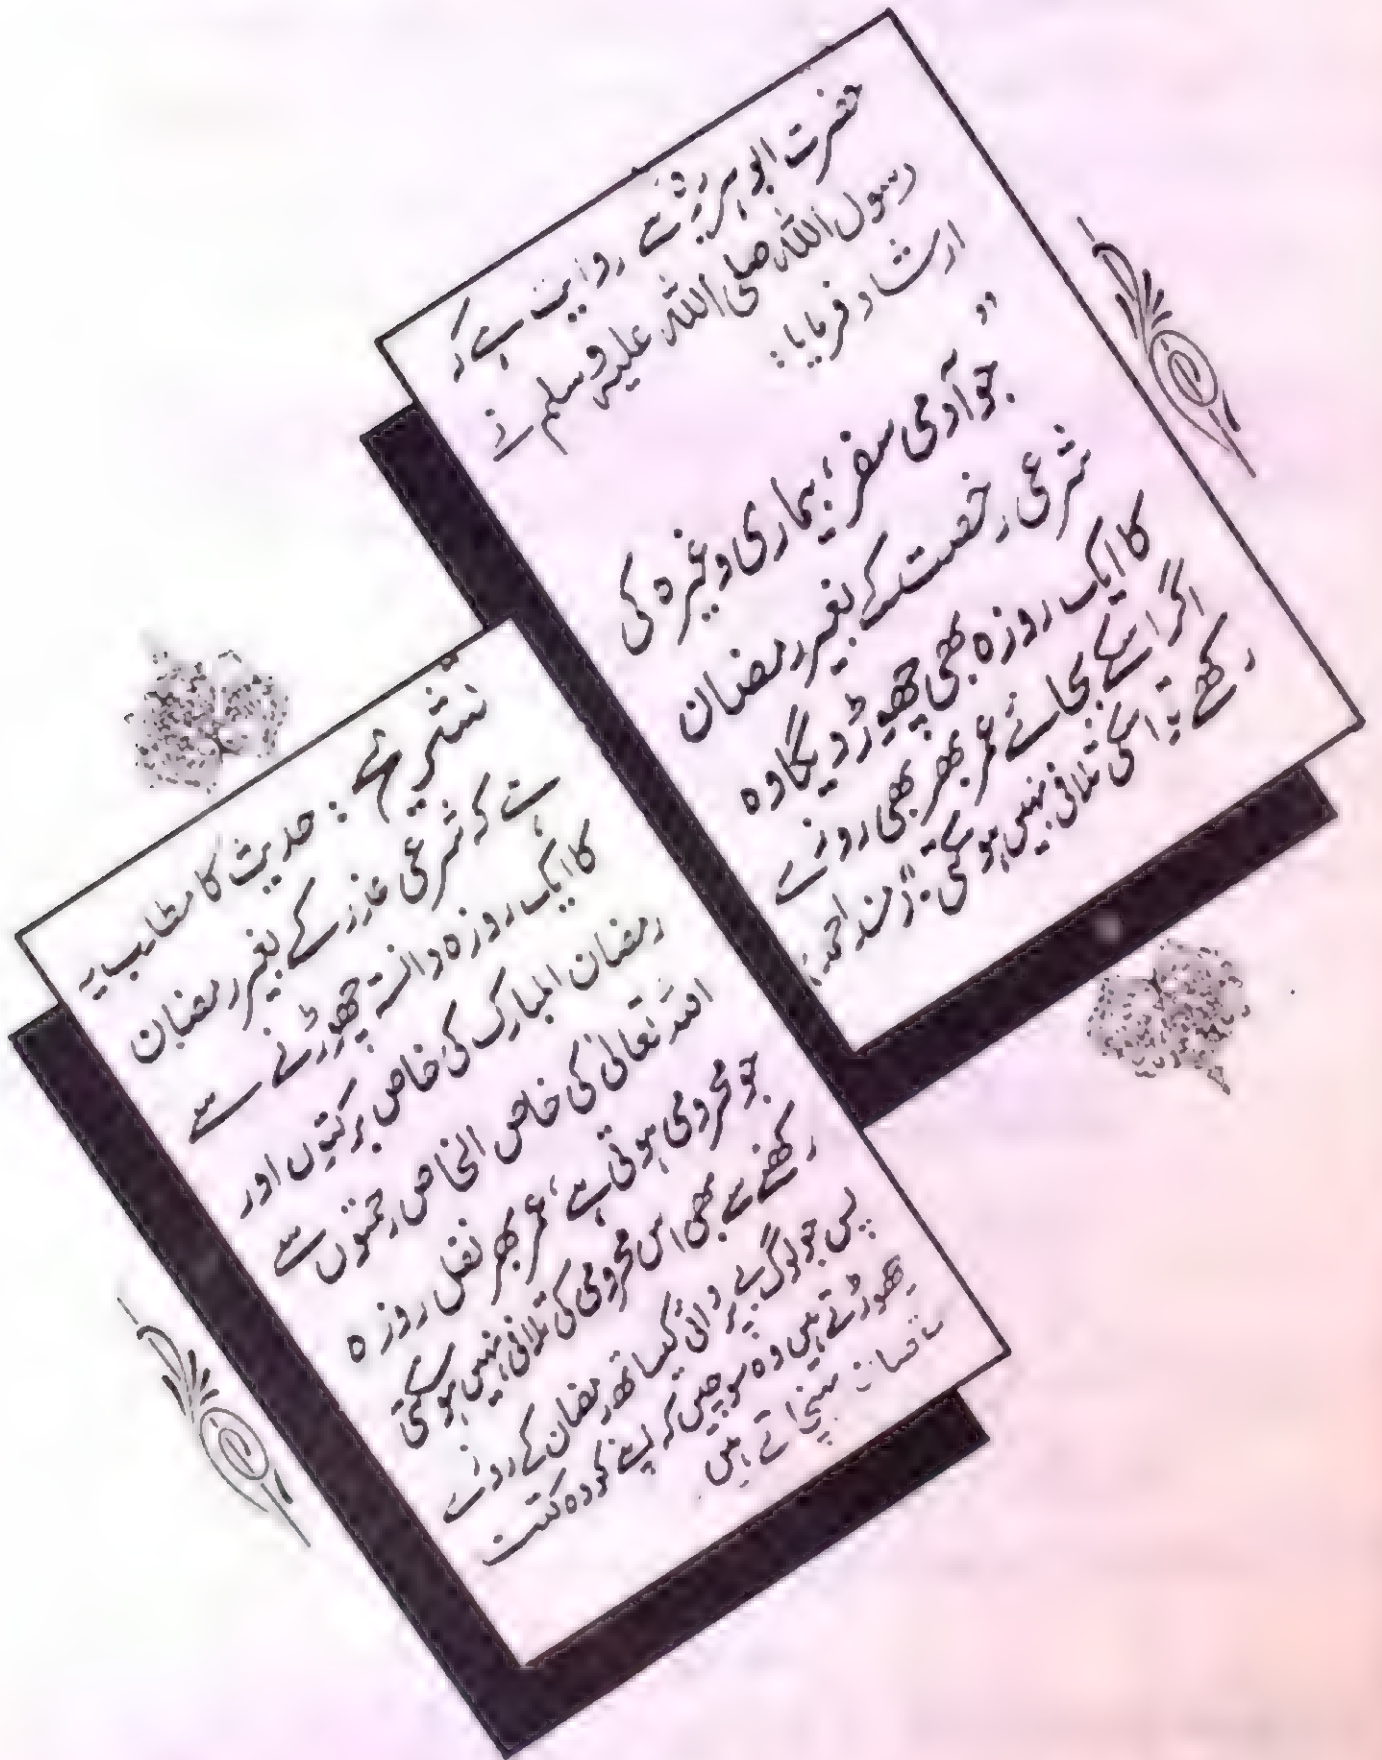 حضرت ابوہریرہؓ سے روایت ہے کہ
رسول اللہ صلی اللہ علیہ وسلم نے
ارشاد فرمایا:
"
جو آدمی سفر، بیماری وغیرہ کی
شرعی رخصت کے بغیر رمضان
کا ایک روزہ بھی چھوڑ دیگا وہ
اگر اسکے بجائے عمر بھر بھی روزے
رکھے تو اسکی تلافی نہیں ہو سکتی:" (مسند احمد)
تشریح : حدیث کا مطلب یہ
ہے کہ شرعی عذر کے بغیر رمضان
کا ایک روزہ دانستہ چھوڑنے سے
رمضان المبارک کی خاص برکتوں اور
اللہ تعالیٰ کی خاص الخاص رحمتوں سے
جو محرومی ہوتی ہے، عمر بھر نفل روزہ
رکھنے سے بھی اس محرومی کی تلافی نہیں ہو سکتی
پس جو لوگ بے پروائی کیساتھ رمضان کے روزے
چھوڑتے ہیں وہ سوچیں کہ اپنے کو وہ کتنا
نقصان پہنچاتے ہیں